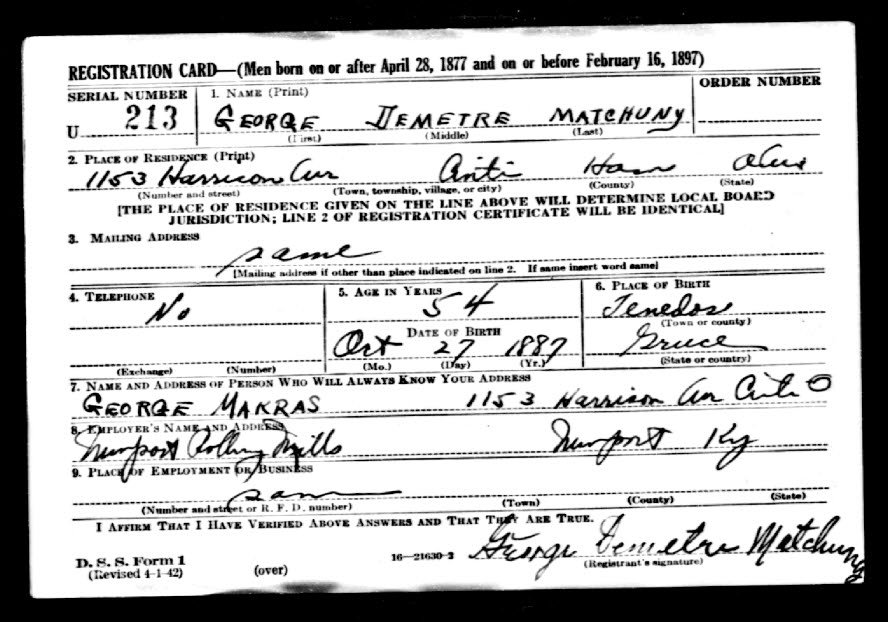 REGISTRATION CARD—(Men born on or after April 28, 1877 and on or before February 16, 1897)
SERIAL NUMBER 1. NAME (Print) ORDER NUMBER
U 213 GEORGE DEMETRE MATCHUNY
(First) (Middle) (Last)
2. PLACE OF RESIDENCE (Print)
1153 Harrison Av Cinti Ham Ohio
(Number and street) (Town, township, village, or city) (County) (State)
[THE PLACE OF RESIDENCE GIVEN ON THE LINE ABOVE WILL DETERMINE LOCAL BOARD
JURISDICTION; LINE 2 OF REGISTRATION CERTIFICATE WILL BE IDENTICAL]
3. MAILING ADDRESS
same
[Mailing address if other than place indicated on line 2. If same insert word same]
4. TELEPHONE 5. AGE IN YEARS 6. PLACE OF BIRTH
No 54 Tenedos
(Town or county)
DATE OF BIRTH
Oct 27 1887 Greece
(Exchange) (Number) (Mo.) (Day) (Yr.) (State or country)
7. NAME AND ADDRESS OF PERSON WHO WILL ALWAYS KNOW YOUR ADDRESS
GEORGE MAKRAS 1153 Harrison Av Cinti O
8. EMPLOYER'S NAME AND ADDRESS
Newport Rolling Mills Newport Ky
9. PLACE OF EMPLOYMENT OR BUSINESS
same
(Number and street or R. F. D. number) (Town) (County) (State)
I AFFIRM THAT I HAVE VERIFIED ABOVE ANSWERS AND THAT THEY ARE TRUE.
D. S. S. Form 1 16—21630-2 George Demetre Matchuny
(Revised 4-1-42) (over) (Registrant's signature)